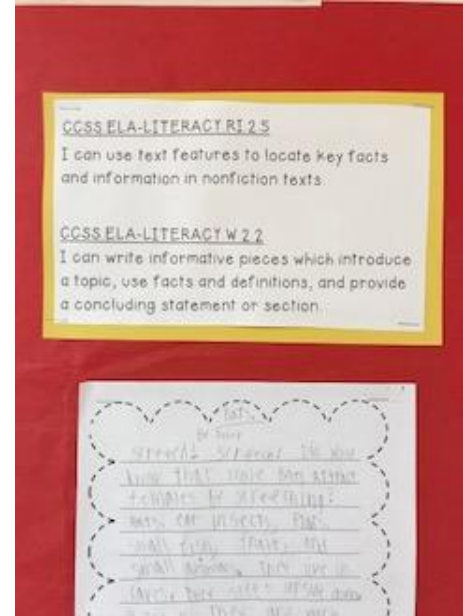 CCSS.ELA-LITERACY.RI.2.5
I can use text features to locate key facts
and information in nonfiction texts.
CCSS.ELA-LITERACY.W.2.2
I can write informative pieces which introduce
a topic, use facts and definitions, and provide
a concluding statement or section.
Bats
Screech! Screech! Do you
know that some bats attract
females by screeching?
Bats eat insects, frogs,
small fish, fruit, and
small animals. They live in
caves. They sleep upside down